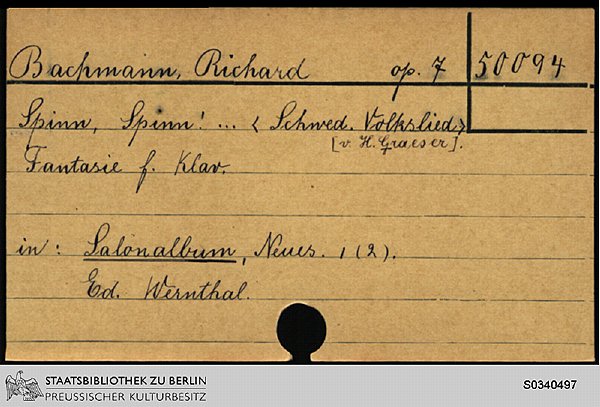 Bachmann, Richard op. 7 50094
Spinn, Spinn! ... < Schwed. Volkslied>
[v. H. Graeser].
Fantasie f. Klav.
in: Salonalbum, Neues. 1 (2).
Ed. Wernthal.
STAATSBIBLIOTHEK ZU BERLIN
PREUSSISCHER KULTURBESITZ
S0340497